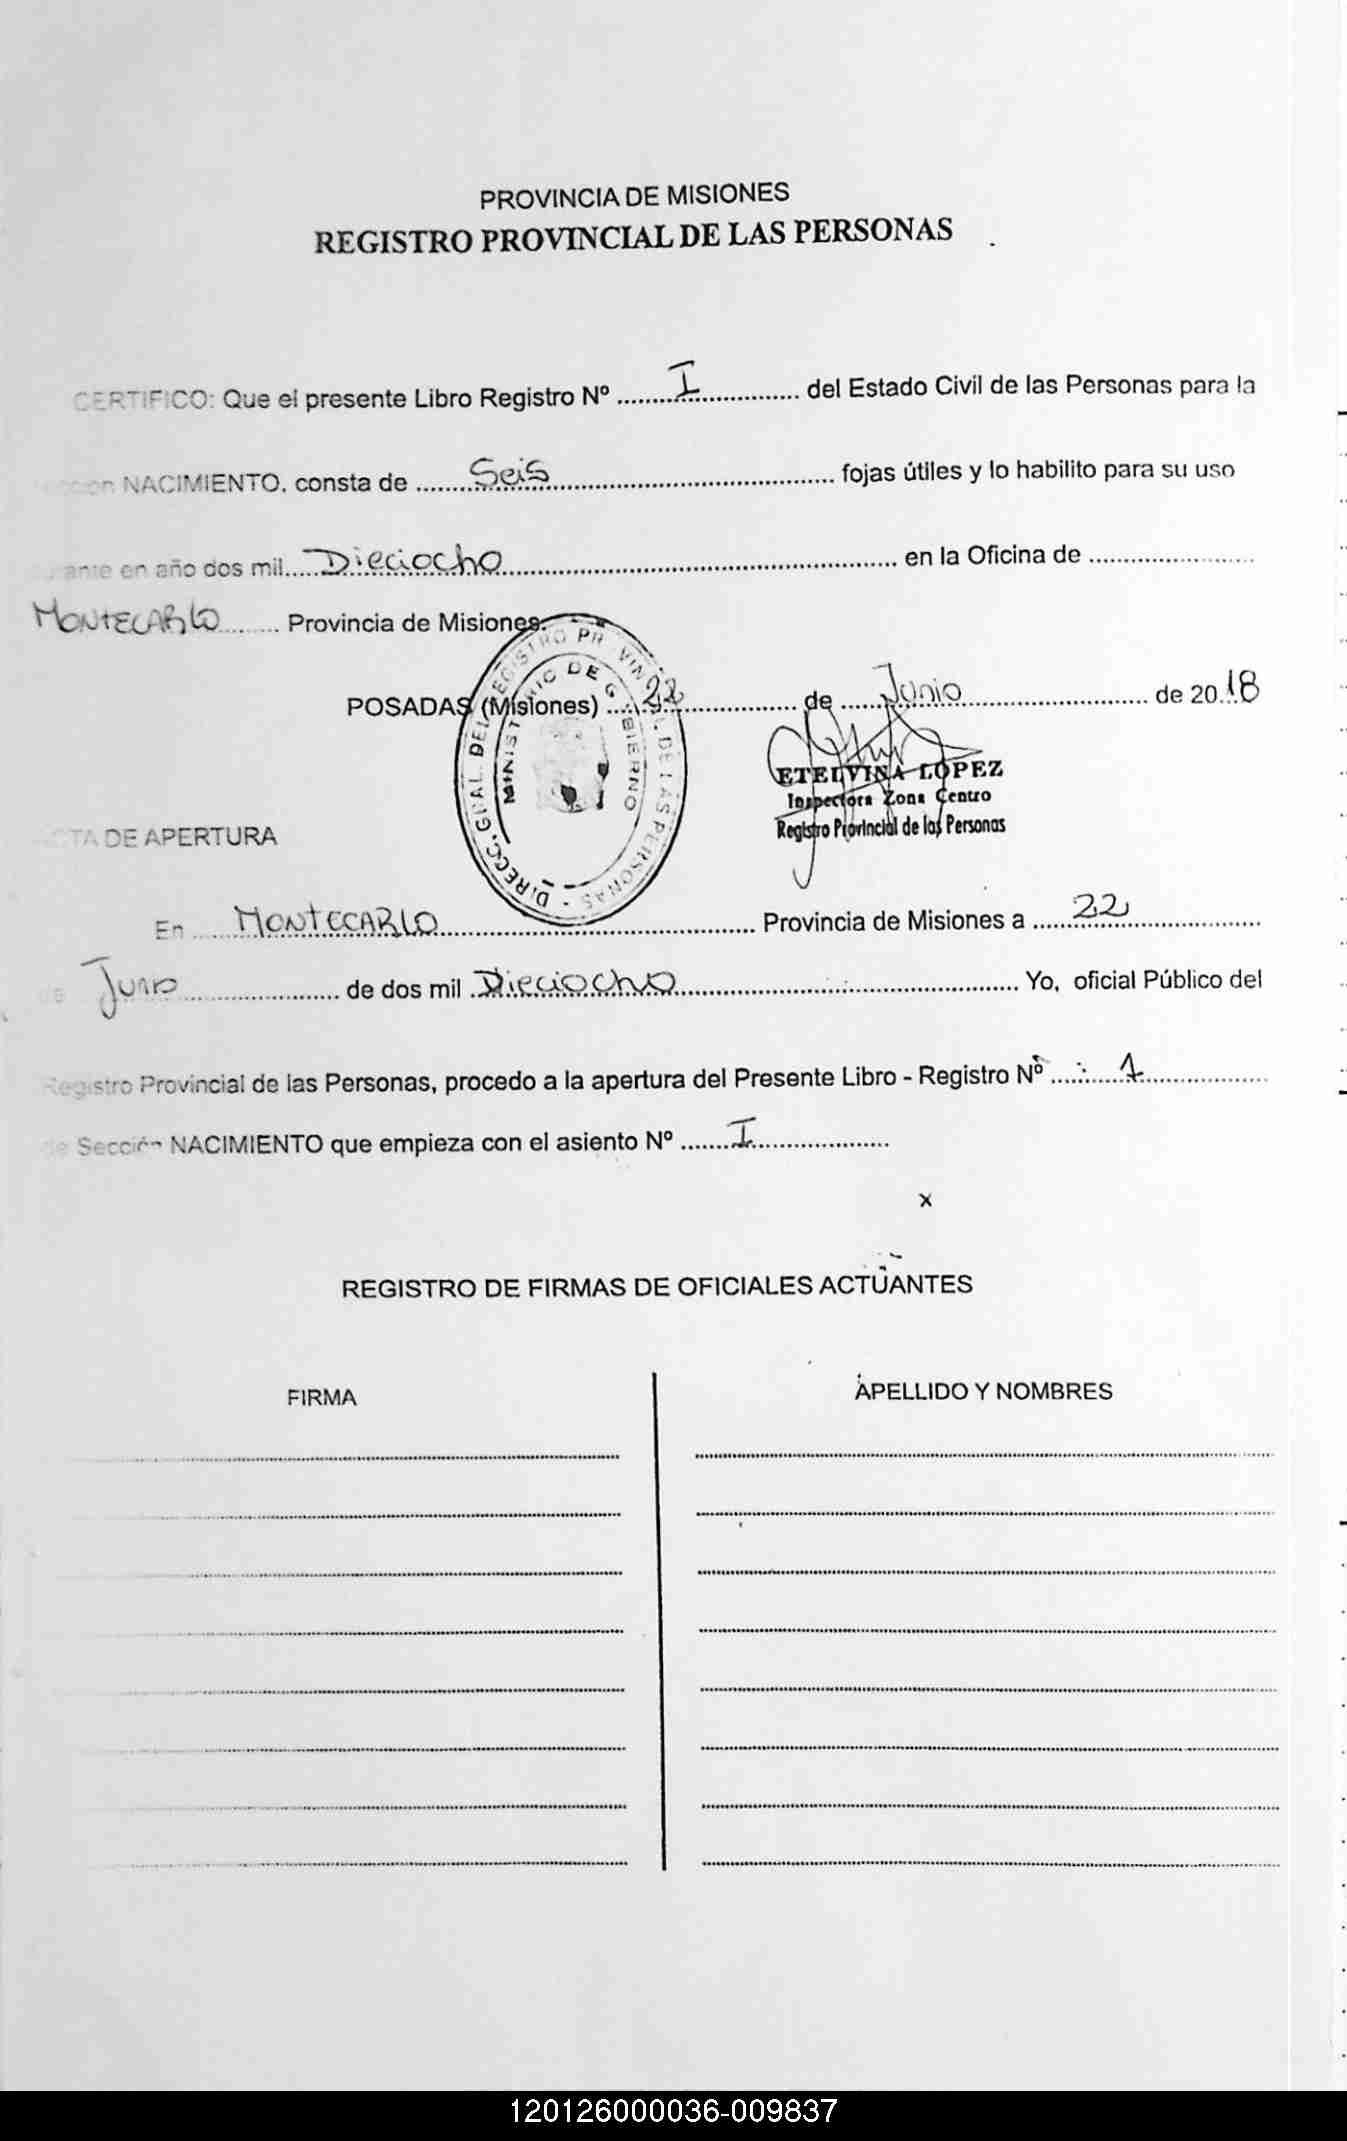 PROVINCIA DE MISIONES
REGISTRO PROVINCIAL DE LAS PERSONAS
CERTIFICO: Que el presente Libro Registro Nº ..... I ..... del Estado Civil de las Personas para la
NACIMIENTO, consta de ..... Seis ..... fojas útiles y lo habilito para su uso
en año dos mil ..... Dieciocho ..... en la Oficina de .....
MONTECARLO ..... Provincia de Misiones.
POSADAS (Misiones) ..... 22 ..... de ..... Junio ..... de 20 18
DIRECC. GRAL. DEL REGISTRO PROVINCIAL DE LAS PERSONAS -
MINISTERIO DE GOBIERNO
ETELVINA LOPEZ
Inspectora Zona Centro
Registro Provincial de las Personas
DE APERTURA
En ..... MONTECARLO ..... Provincia de Misiones a ..... 22 .....
de Junio ..... de dos mil ..... Dieciocho ..... Yo, oficial Público del
Registro Provincial de las Personas, procedo a la apertura del Presente Libro - Registro Nº ..... 1 .....
de Sección NACIMIENTO que empieza con el asiento Nº ..... I .....
x
REGISTRO DE FIRMAS DE OFICIALES ACTUANTES
FIRMA
APELLIDO Y NOMBRES
120126000036-009837